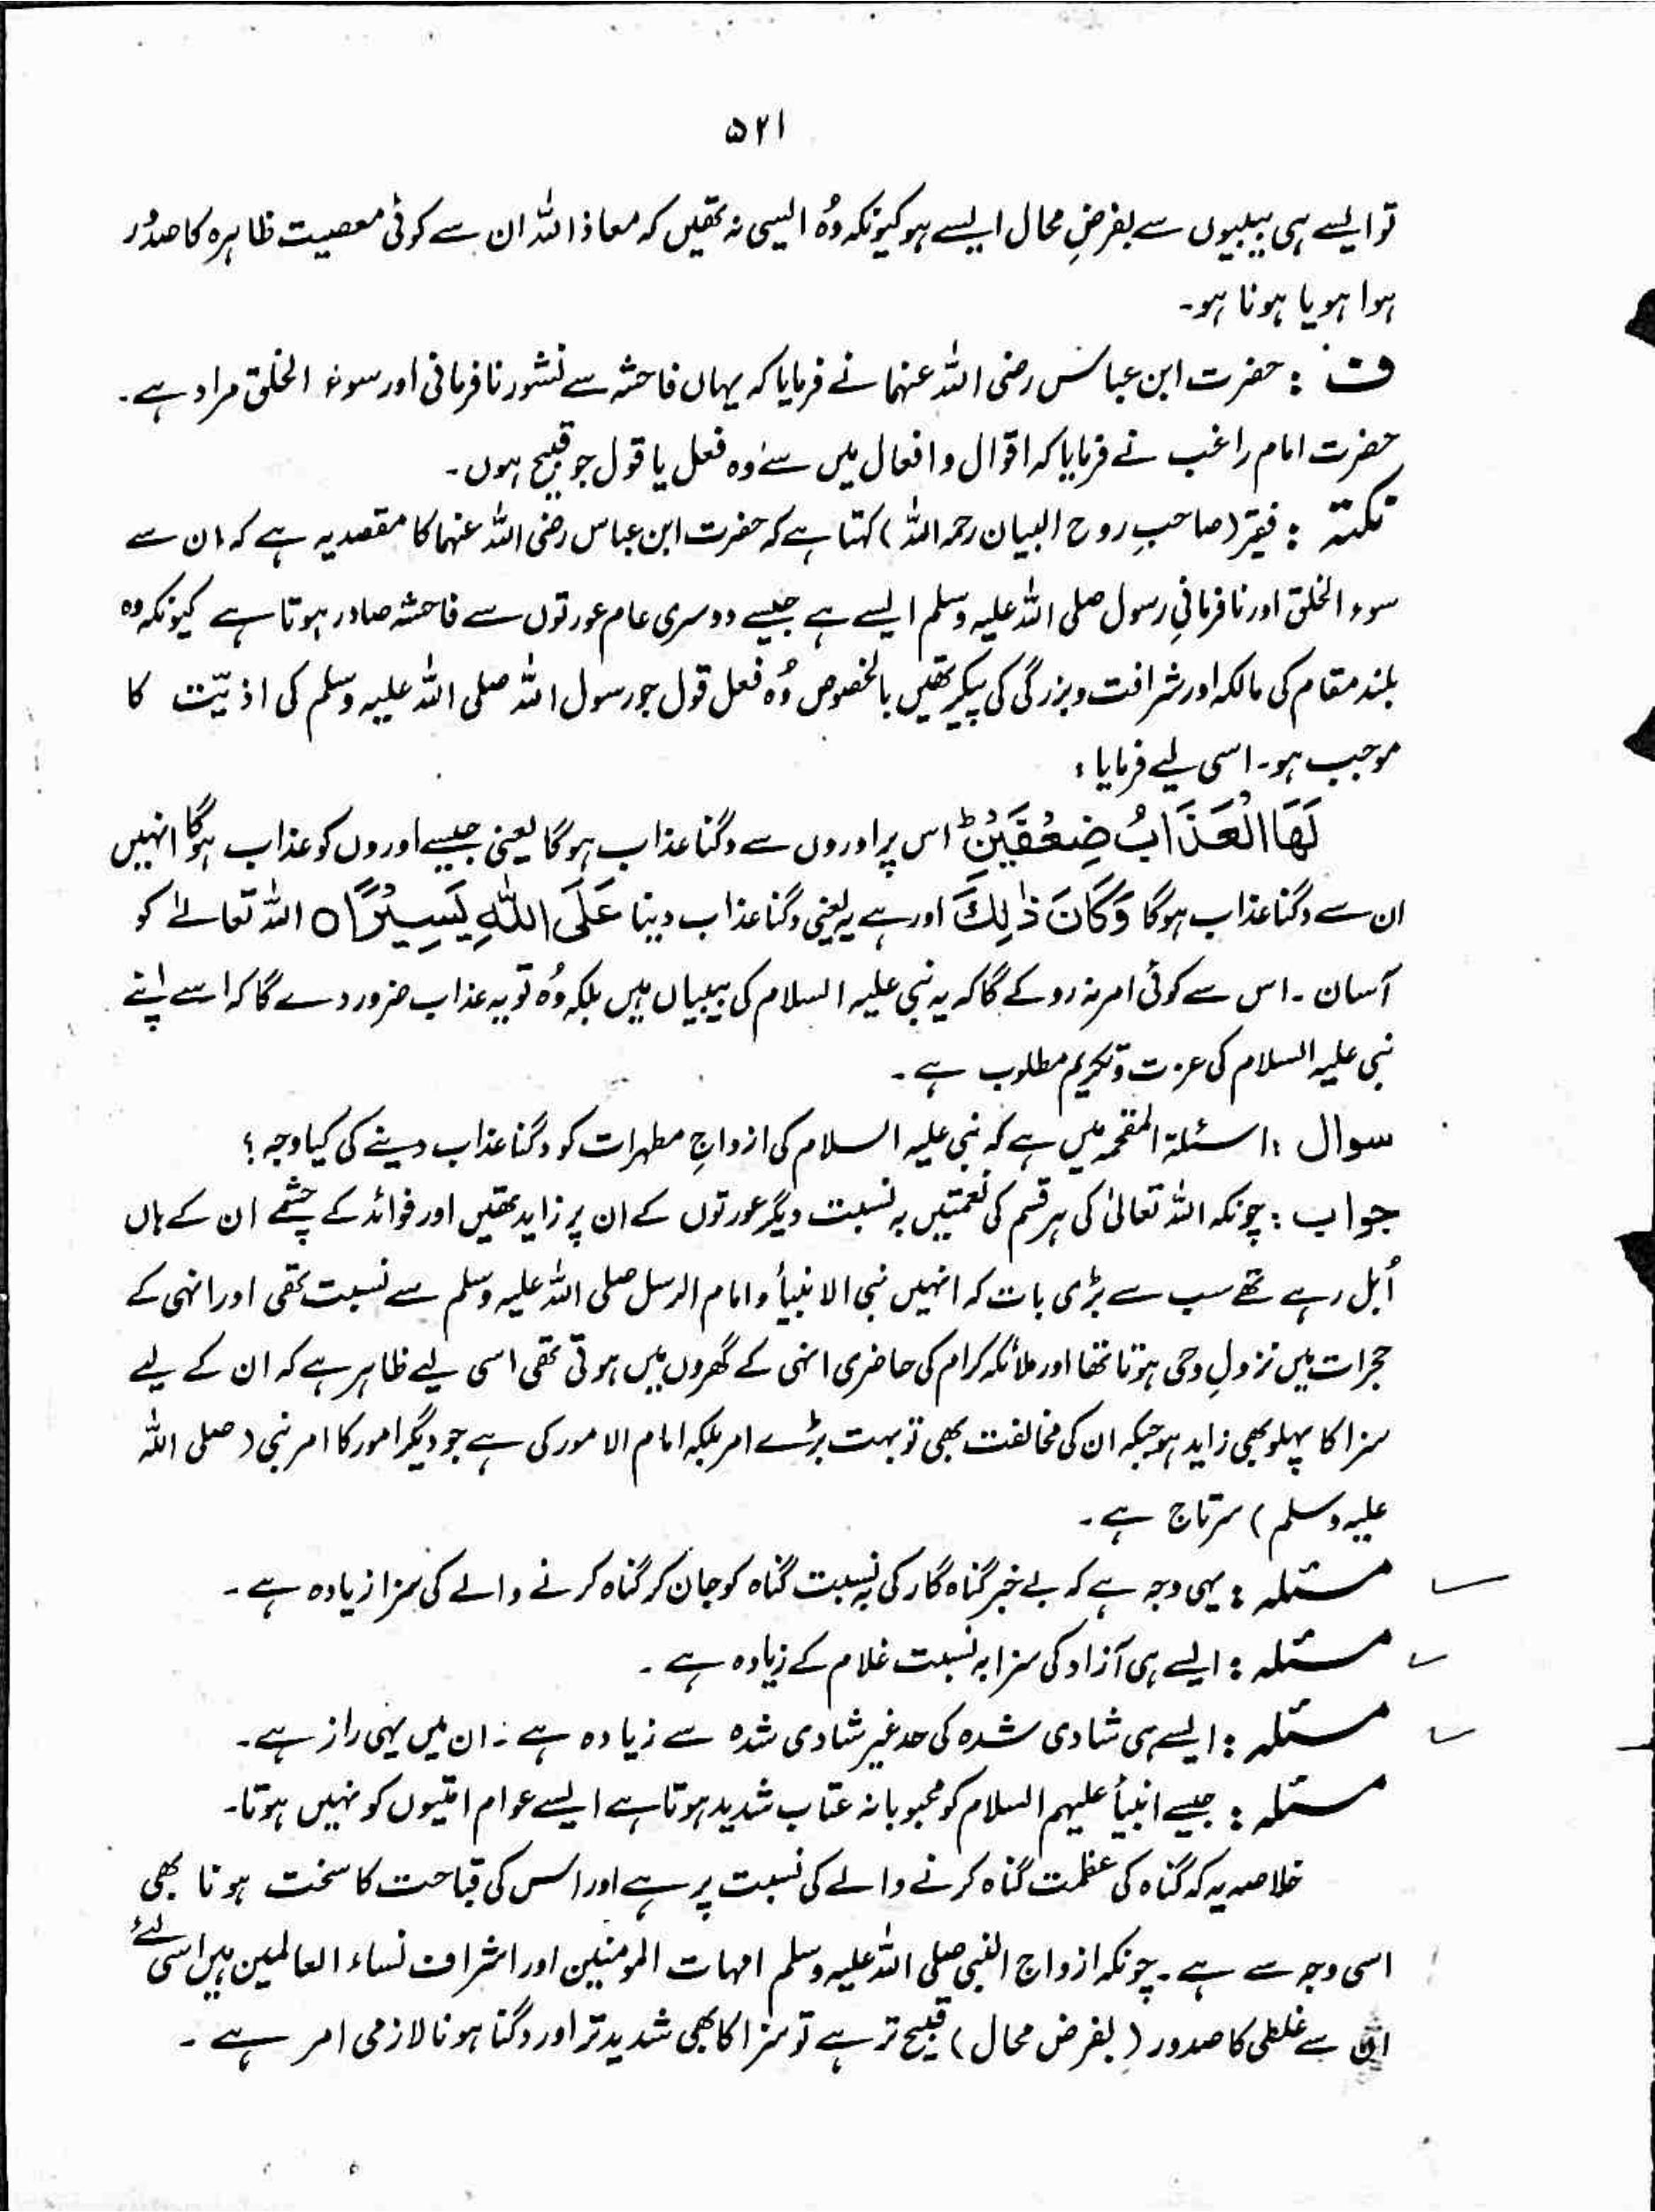 ۵۲۱
تو ایسے ہی بیبیوں سے بفرضِ محال ایسے ہو کیونکہ وُہ ایسی نہ تھیں کہ معاذ اللہ ان سے کوئی معصیت ظاہرہ کا صدُور
ہوا ہو یا ہونا ہو۔
ف : حضرت ابن عباس رضی اللہ عنہما نے فرمایا کہ یہاں فاحشہ سے نشور نافرمانی اور سوء الخلق مراد ہے۔
حضرت امام راغب نے فرمایا کہ اقوال و افعال میں سے وہ فعل یا قول جو قبیح ہوں۔
نکتہ : فقیر (صاحبِ روح البیان رحمہ اللہ) کہتا ہے کہ حضرت ابن عباس رضی اللہ عنہما کا مقصد یہ ہے کہ ان سے
سوء الخلق اور نافرمانیِ رسول صلی اللہ علیہ وسلم ایسے ہے جیسے دوسری عام عورتوں سے فاحشہ صادر ہوتا ہے کیونکہ وہ
بلند مقام کی مالکہ اور شرافت و بزرگی کی پیکر تھیں بالخصوص وُہ فعل قول جو رسول اللہ صلی اللہ علیہ وسلم کی اذیّت کا
موجب ہو۔ اسی لیے فرمایا :
لَهَا الْعَذَابُ ضِعْفَيْنِ ؕ اس پر اوروں سے دگنا عذاب ہوگا یعنی جیسے اوروں کو عذاب ہوگا انہیں
ان سے دگنا عذاب ہوگا وَكَانَ ذٰلِكَ اور ہے یہ یعنی دگنا عذاب دینا عَلَى اللّٰهِ يَسِيْرًا ○ اللہ تعالےٰ کو
آسان ۔ اس سے کوئی امر نہ روکے گا کہ یہ نبی علیہ السلام کی بیبیاں ہیں بلکہ وُہ تو یہ عذاب ضرور دے گا کہ اسے اپنے
نبی علیہ السلام کی عزت و تکریم مطلوب ہے ۔
سوال : اسئلۃ المقحمہ میں ہے کہ نبی علیہ السلام کی ازواجِ مطہرات کو دگنا عذاب دینے کی کیا وجہ ؟
جواب : چونکہ اللہ تعالیٰ کی ہر قسم کی نعمتیں بہ نسبت دیگر عورتوں کے ان پر زاید تھیں اور فوائد کے چشمے ان کے ہاں
اُبل رہے تھے سب سے بڑی بات کہ انہیں نبی الانبیأ و امام الرسل صلی اللہ علیہ وسلم سے نسبت تھی اور انہی کے
حجرات میں نزولِ وحی ہوتا تھا اور ملائکہ کرام کی حاضری انہی کے گھروں میں ہوتی تھی اسی لیے ظاہر ہے کہ ان کے لیے
سزا کا پہلو بھی زاید ہو جبکہ ان کی مخالفت بھی تو بہت بڑے امر بلکہ امام الامور کی ہے جو دیگر امور کا امر نبی (صلی اللہ
علیہ وسلم) سرتاج ہے ۔
مسئلہ : یہی وجہ ہے کہ بے خبر گناہ گار کی بہ نسبت گناہ کو جان کر گناہ کرنے والے کی سزا زیادہ ہے ۔
مسئلہ : ایسے ہی آزاد کی سزا بہ نسبت غلام کے زیادہ ہے ۔
مسئلہ : ایسے ہی شادی شدہ کی حد غیر شادی شدہ سے زیادہ ہے ۔ ان میں یہی راز ہے ۔
مسئلہ : جیسے انبیأ علیہم السلام کو محبوبانہ عتاب شدید ہوتا ہے ایسے عوام امتیوں کو نہیں ہوتا۔
خلاصہ یہ کہ گناہ کی عظمت گناہ کرنے والے کی نسبت پر ہے اور اس کی قباحت کا سخت ہونا بھی
اسی وجہ سے ہے ۔ چونکہ ازواج النبی صلی اللہ علیہ وسلم امہات المومنین اور اشراف نساء العالمین ہیں اسی لئے
ان سے غلطی کا صدور (بفرض محال) قبیح تر ہے تو سزا کا بھی شدید تر اور دگنا ہونا لازمی امر ہے ۔